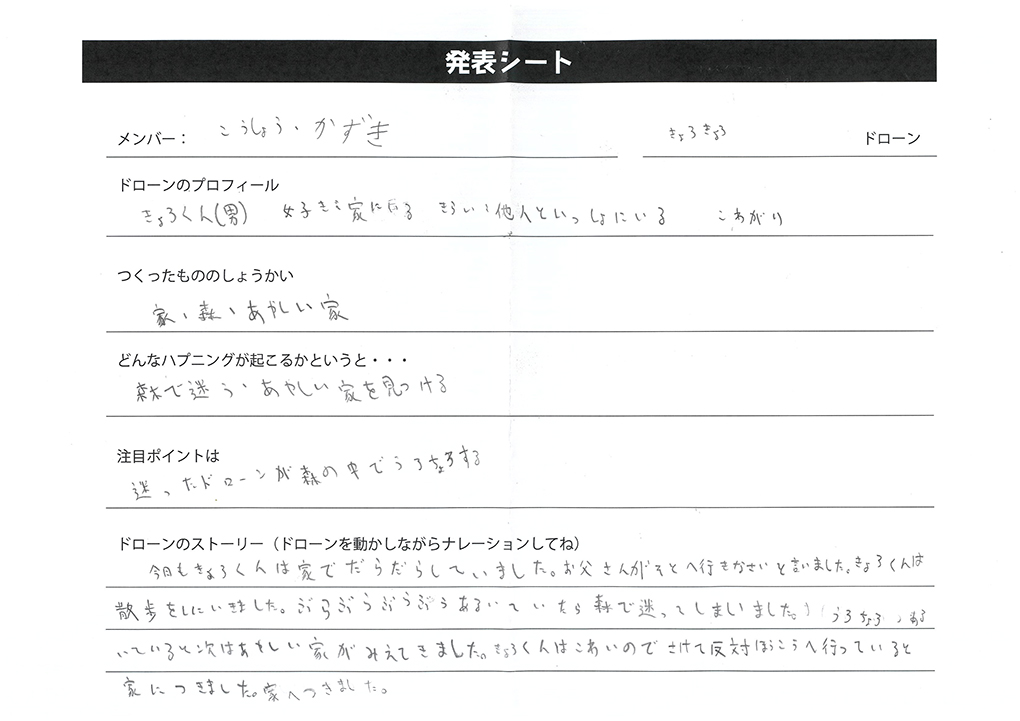 発表シート
メンバー： こうしょう・かずき きょろきょろ ドローン
ドローンのプロフィール
きょろくん(男) 好き：家に居る きらい：他人といっしょにいる こわがり
つくったもののしょうかい
家、森、あやしい家
どんなハプニングが起こるかというと・・・
森で迷う、あやしい家を見つける
注目ポイントは
迷ったドローンが森の中でうろちょろする
ドローンのストーリー（ドローンを動かしながらナレーションしてね）
今日もきょろくんは家でだらだらしていました。お父さんがそとへ行きなさいと言いました。きょろくんは
散歩をしにいきました。ぶらぶらぶらぶらあるいていたら森で迷ってしまいました。うろちょろ ある
いていると次はあやしい家がみえてきました。きょろくんはこわいのでさけて反対ほうこうへ行っていると
家につきました。家へつきました。